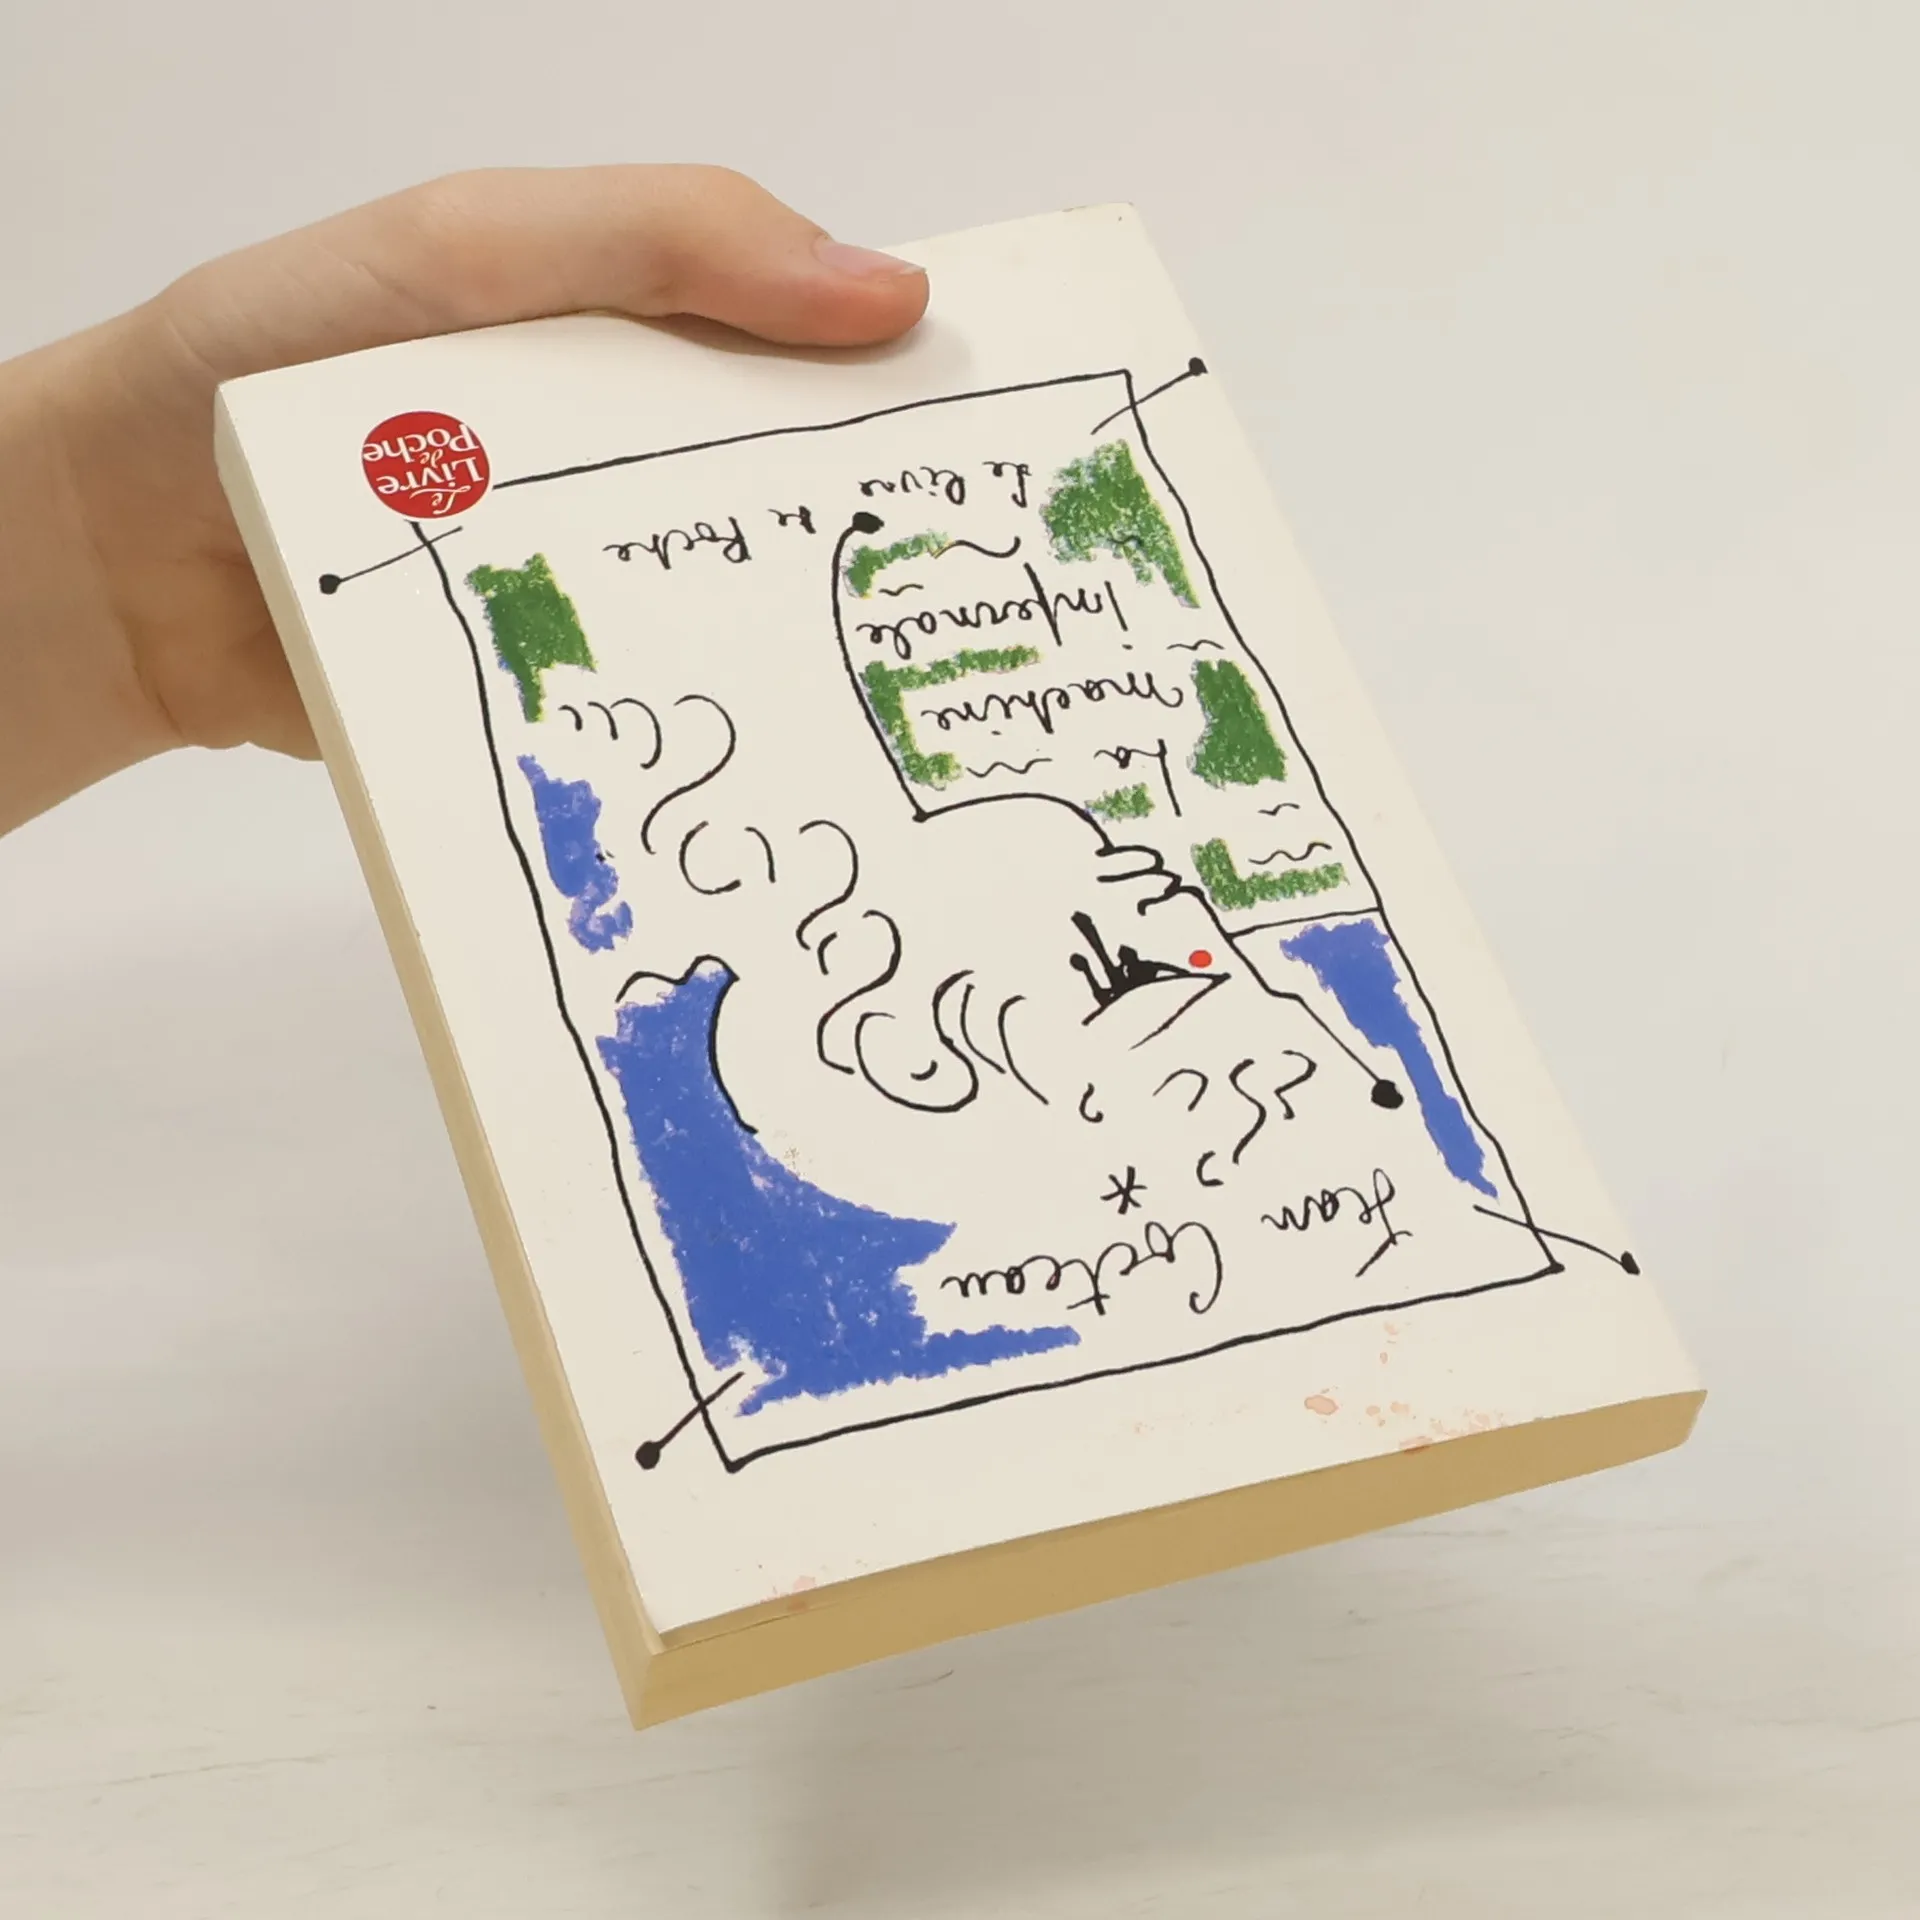 Jean Cocteau
La
machine
infernale
Le livre
de Poche
Le
Livre
de
Poche